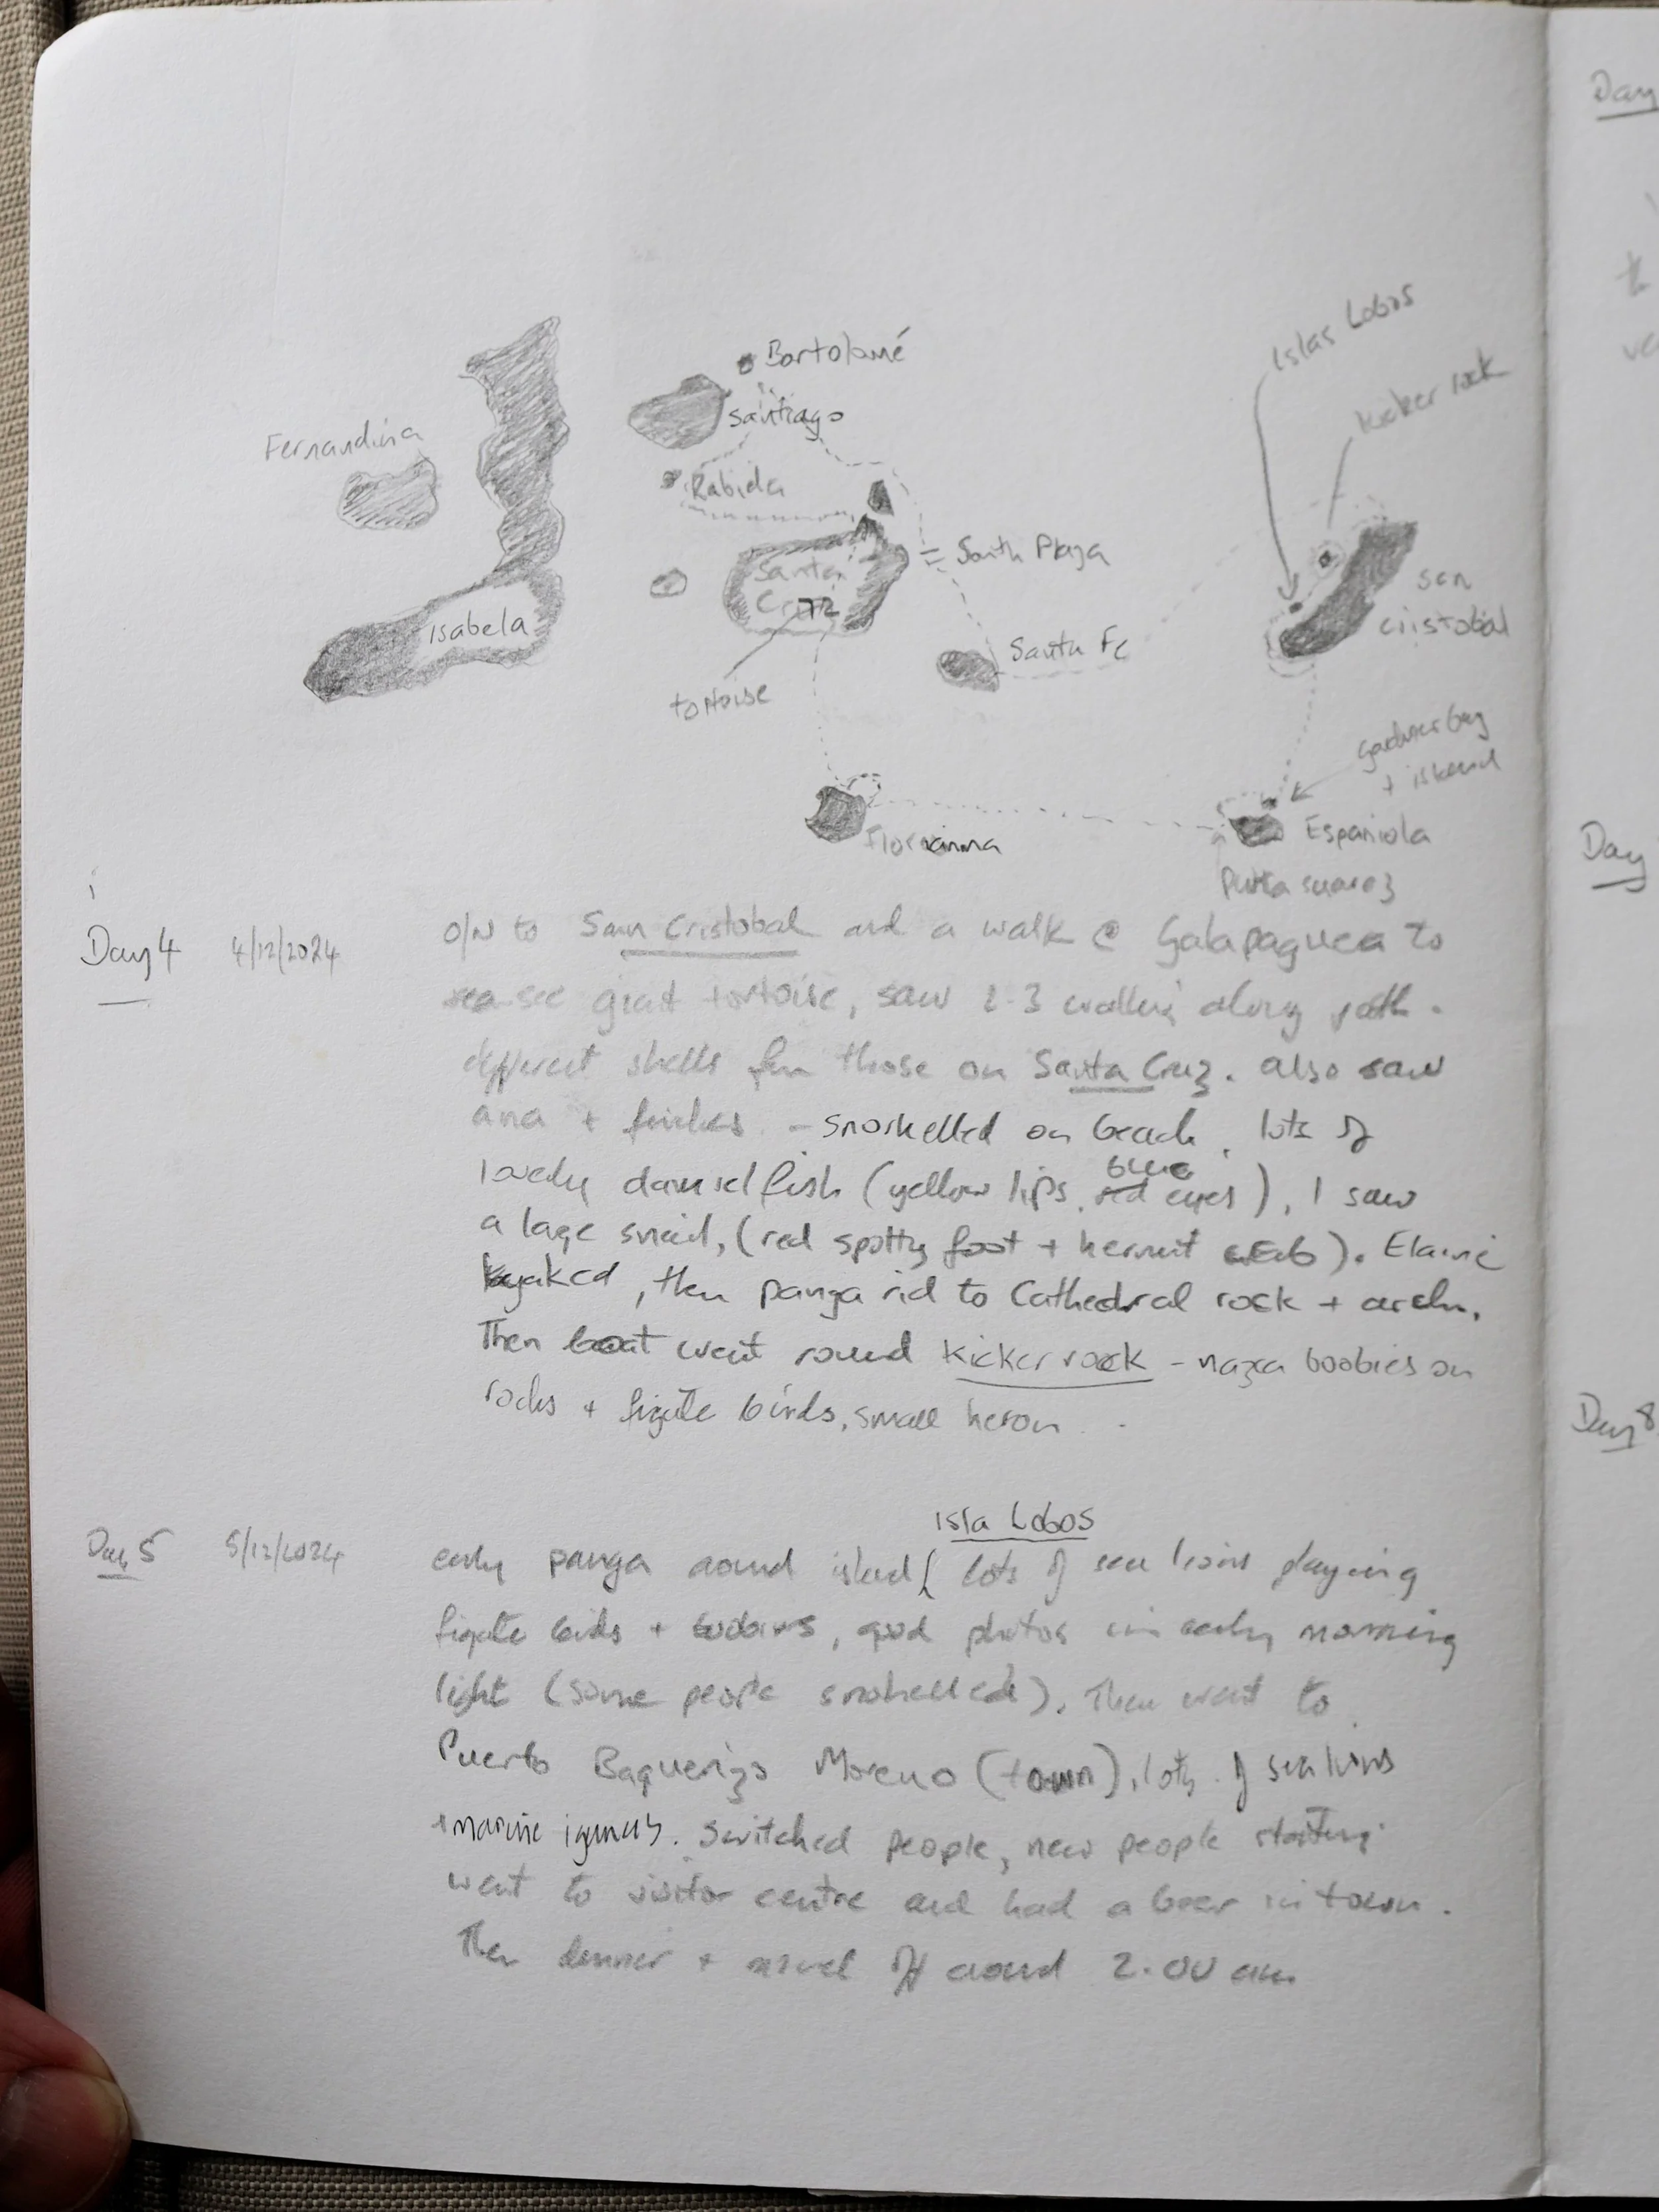 Bartolomé
Islas Lobos
Santiago
Kicker rock
Fernandina
Rabida
South Plaza
Santa
Cruz
San
Cristobal
Isabela
Santa Fe
tortoise
Gardner bay
+ island
Española
Punta suarez
Day 4 4/12/2024 O/N to San Cristobal and a walk @ Galapaguea to
see giant tortoise, saw 2-3 walking along path.
different shells from those on Santa Cruz. also saw
ana + finches - snorkelled on beach, lots of
lovely damsel fish (yellow lips, blue eyes), I saw
a large snail, (red spotty foot + hermit crab). Elaine
kyaked, then panga rid to Cathedral rock + arch.
Then boat went round Kicker rock - nazca boobies on
rocks + frigate birds, small heron.
Isla Lobos
Day 5 5/12/2024 early panga around island ( lots of sea lions playing
frigate birds + boobies, good photos in early morning
light (some people snorkelled). Then went to
Puerto Baquerizo Moreno (town), lots of sea lions
+ marine iguanas. Switched people, new people starting
went to visitor centre and had a beer in town.
Then dinner + moved off around 2.00 am
Day
Day
Day 8